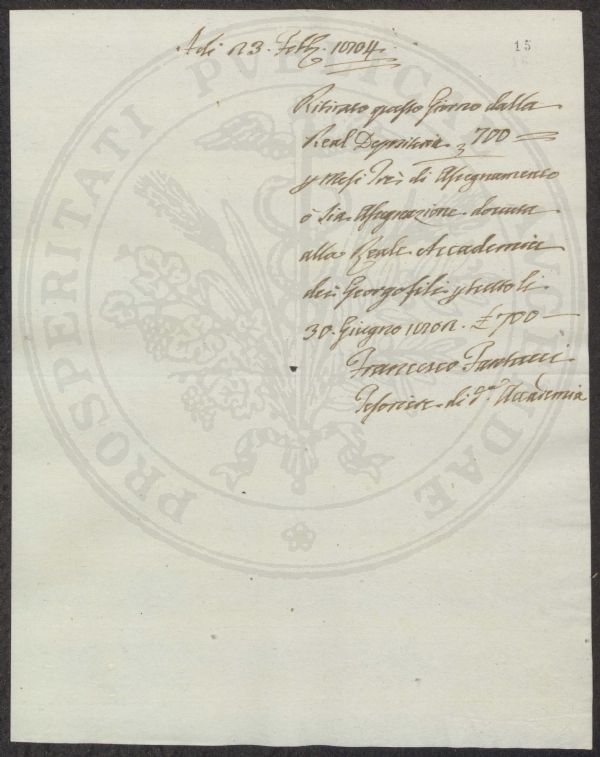 15
Adì 23. Febb. 1804.
Ritirato questo Giorno dalla
Real Depositeria £ 700
p Mesi Trè di Assegnamento
ò sia Assegnazione dovuta
alla Reale Accademia
dei Georgofili p tutto li
30. Giugno 1802. £ 700
Francesco
Tesoriere di d.a Accademia
PROSPERITATI PVBLICAE AVGENDAE